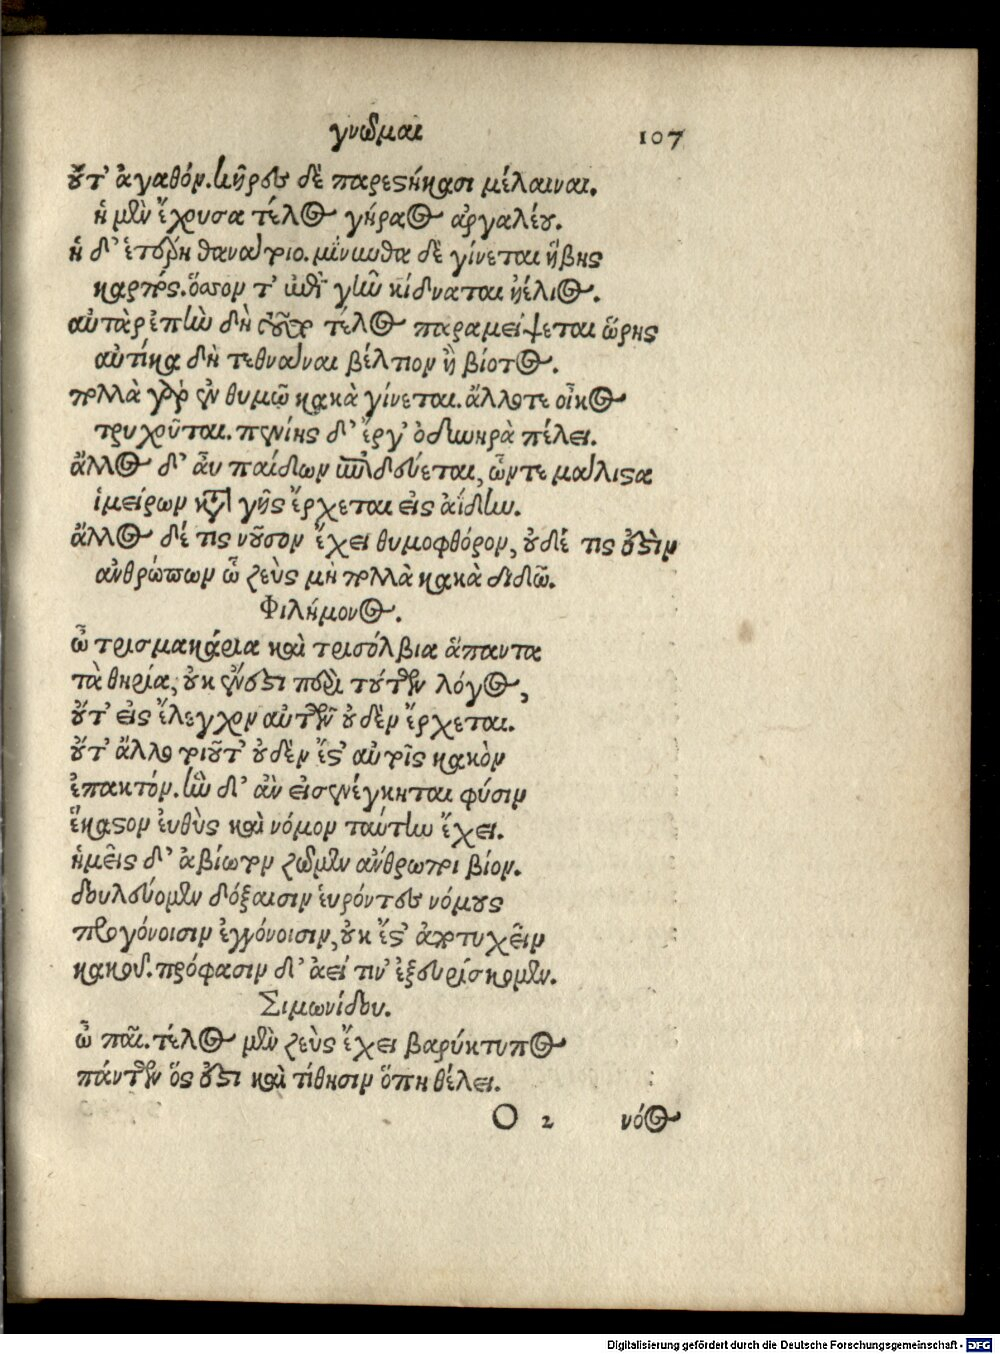 γνῶμαι 107
οὔτ' ἀγαθόν. κῆρες δὲ παρεστήκασι μέλαιναι.
ἡ μὲν ἔχουσα τέλος γήραος ἀργαλέου.
ἡ δ' ἑτέρη θανάτοιο. μίνυνθα δὲ γίνεται ἥβης
καρπός. ὅσον τ' ἐπὶ γῆν κίδναται ἠέλιος.
αὐτὰρ ἐπὴν δὴ τοῦτο τέλος παραμείψεται ὥρης
αὐτίκα δὴ τεθνάναι βέλτιον ἢ βίοτος.
πολλὰ γὰρ ἐν θυμῷ κακὰ γίνεται. ἄλλοτε οἶκος
τρυχοῦται. πενίης δ' ἔργ' ὀδυνηρὰ πέλει.
ἄλλος δ' αὖ παίδων ἐπιδεύεται, ὧντε μάλιστα
ἱμείρων κατὰ γῆς ἔρχεται εἰς ἀΐδην.
ἄλλος δέ τις νοῦσον ἔχει θυμοφθόρον, οὐδέ τις ἐστὶν
ἀνθρώπων ᾧ ζεὺς μὴ πολλὰ κακὰ διδῷ.
Φιλήμονος.
ὦ τρισμακάρια καὶ τρισόλβια ἅπαντα
τὰ θηρία, οὐκ ἔνεστι περὶ τούτων λόγος,
οὔτ' εἰς ἔλεγχον αὐτῶν οὐδὲν ἔρχεται.
οὔτ' ἄλλο τοιοῦτ' οὐδὲν ἔστ' αὐτοῖς κακὸν
ἐπακτόν. ἣν δ' ἂν εἰσενέγκηται φύσιν
ἕκαστον εὐθὺς καὶ νόμον ταύτην ἔχει.
ἡμεῖς δ' ἀβίωτον ζῶμεν ἄνθρωποι βίον.
δουλεύομεν δόξαισιν εὑρόντες νόμους
προγόνοισιν ἐγγόνοισιν, οὐκ ἔστ' ἀποτυχεῖν
κακοῦ. πρόφασιν δ' ἀεί τιν' ἐξευρίσκομεν.
Σιμωνίδου.
ὦ παῖ. τέλος μὲν ζεὺς ἔχει βαρύκτυπος
πάντων ὅς ἐστι καὶ τίθησιν ὅπη θέλει.
O 2 νόος
Digitalisierung gefördert durch die Deutsche Forschungsgemeinschaft - DFG